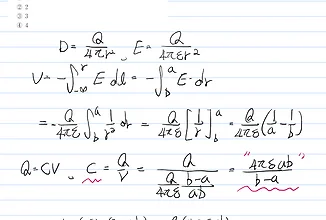 ② 2
③ 3
④ 4
D = Q/4πr², E = Q/4πεr²
V = -∫_{-∞}^{r} E dl = -∫_b^a E·dr
= -Q/4πε ∫_b^a 1/r² dr = Q/4πε [1/r]_b^a = Q/4πε (1/a - 1/b)
Q = CV, C = Q/V = Q / (Q/4πε · (b-a)/ab) = "4πεab/(b-a)"